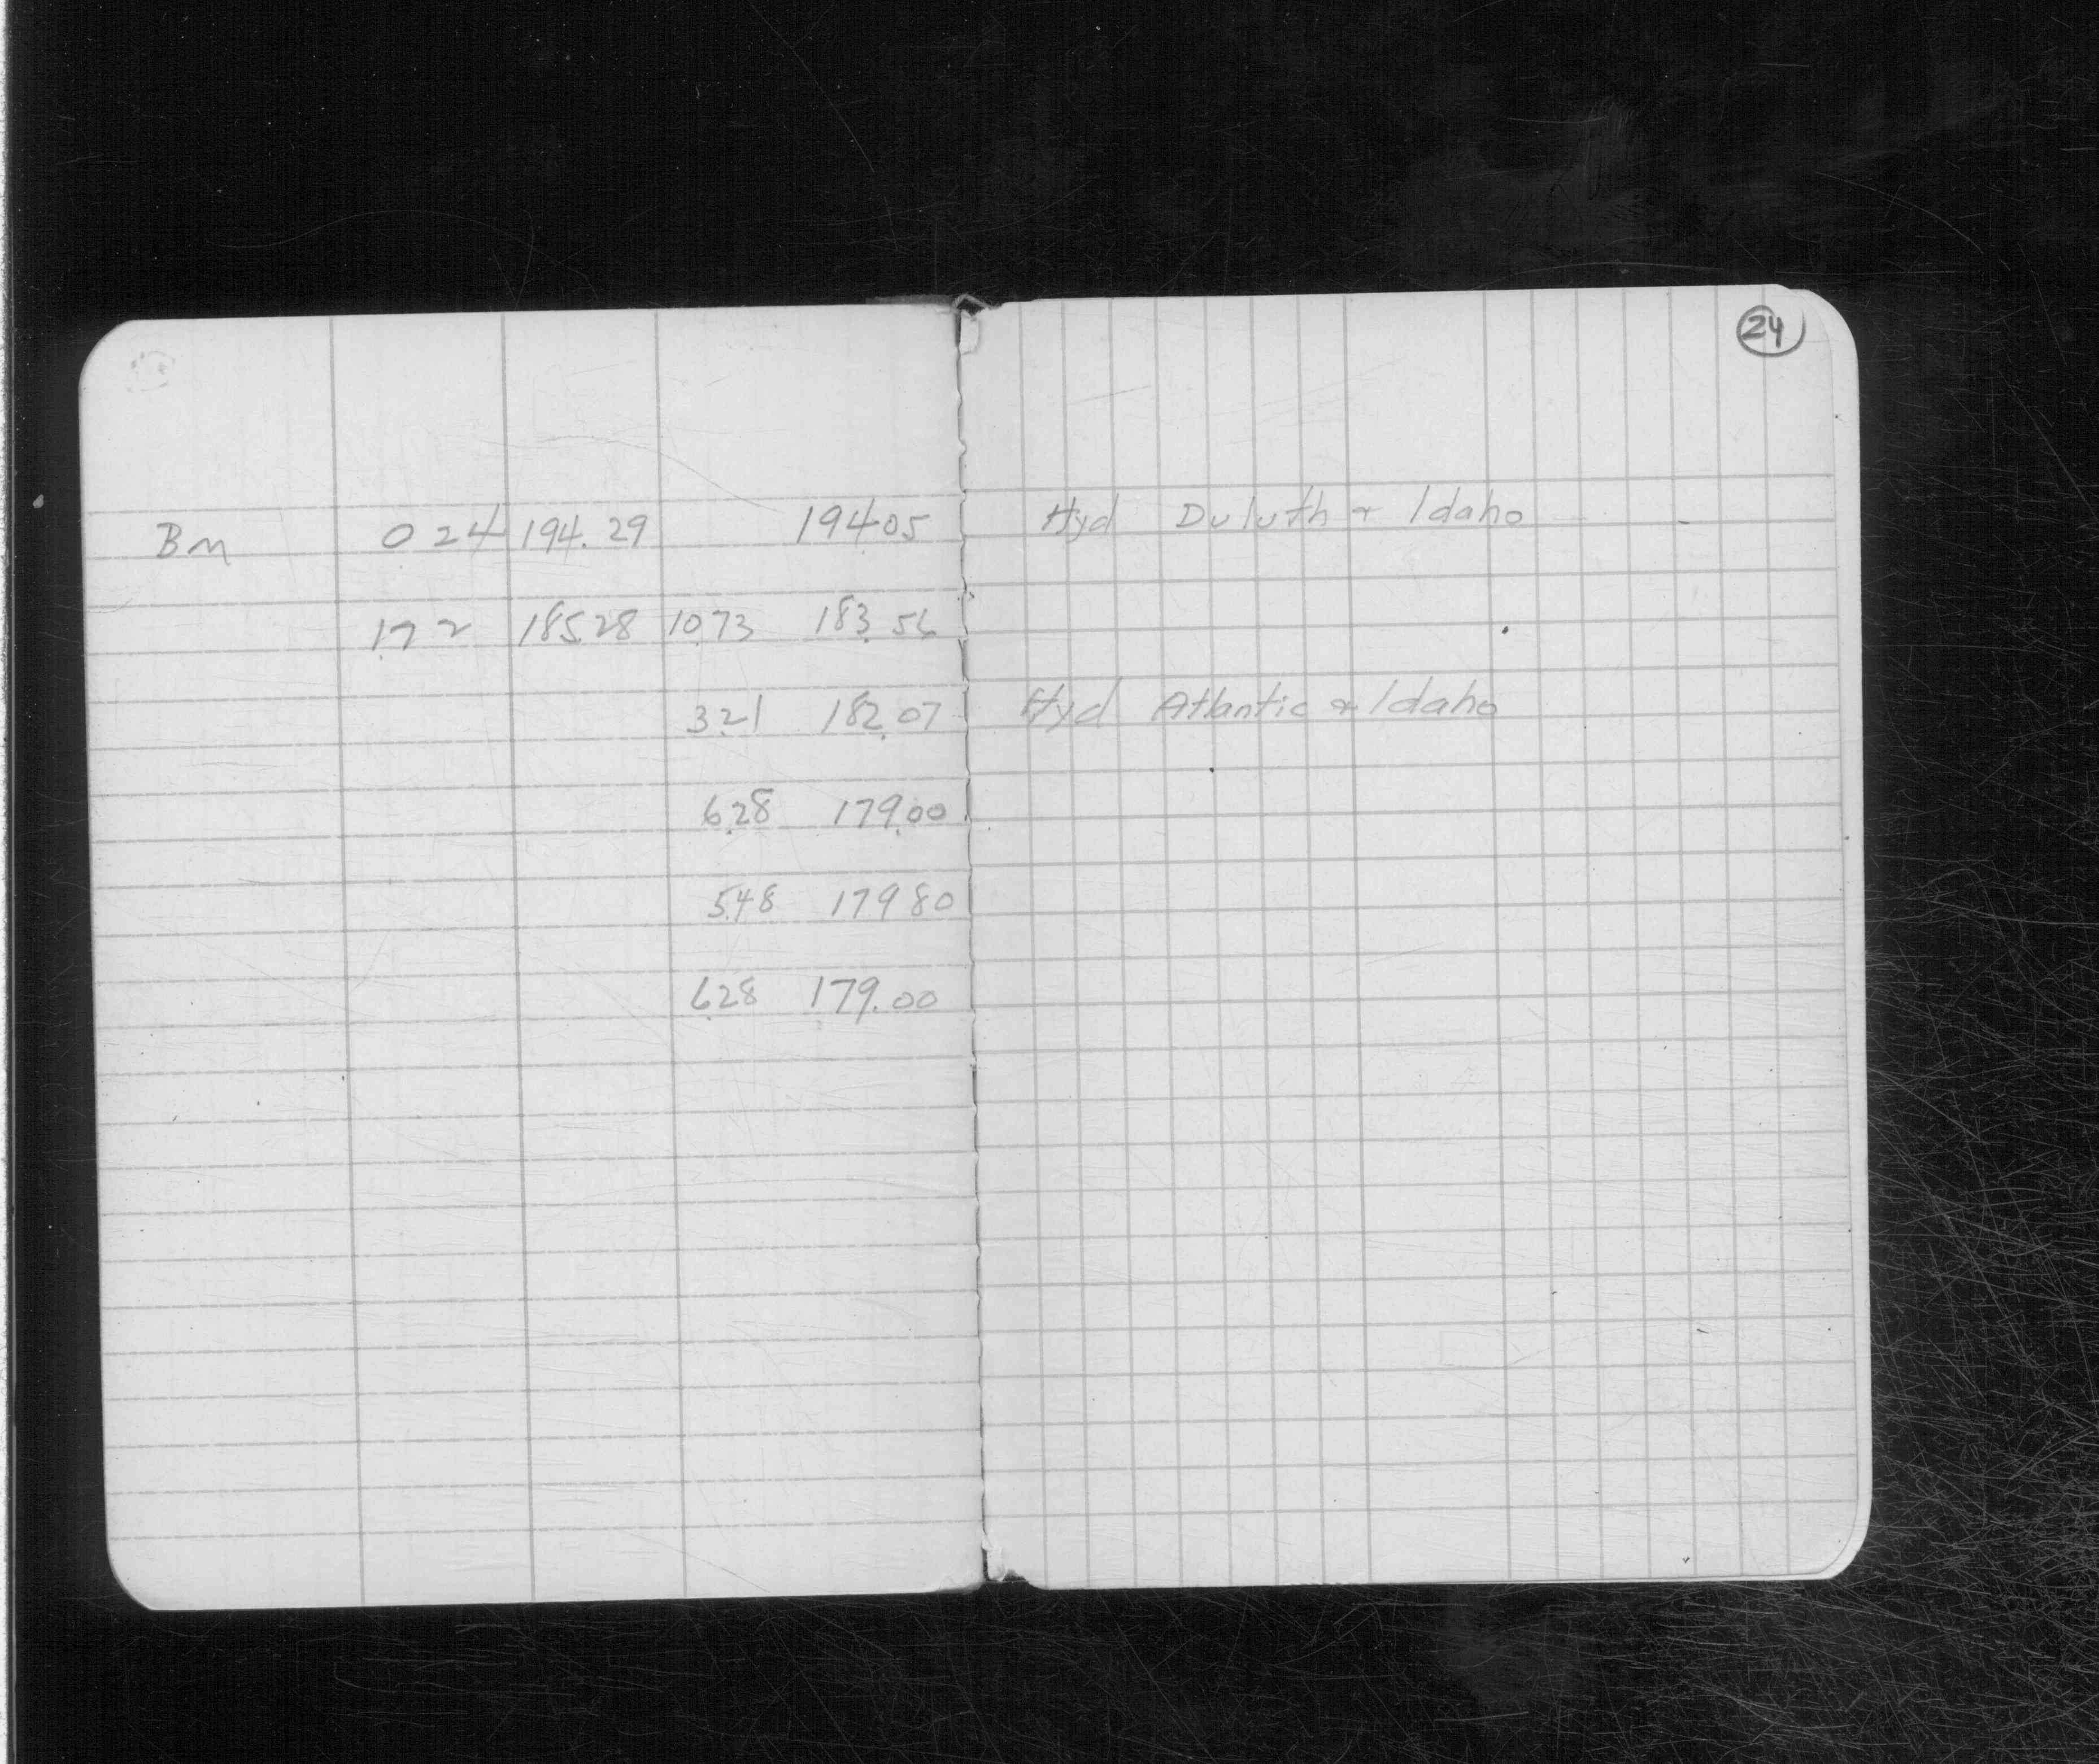 24
BM 0 24 194.29 194 05 Hyd Duluth & Idaho
1.72 185.28 10.73 183.56
3.21 182.07 Hyd Atlantic & Idaho
6.28 179.00
5.48 179 80
6.28 179.00